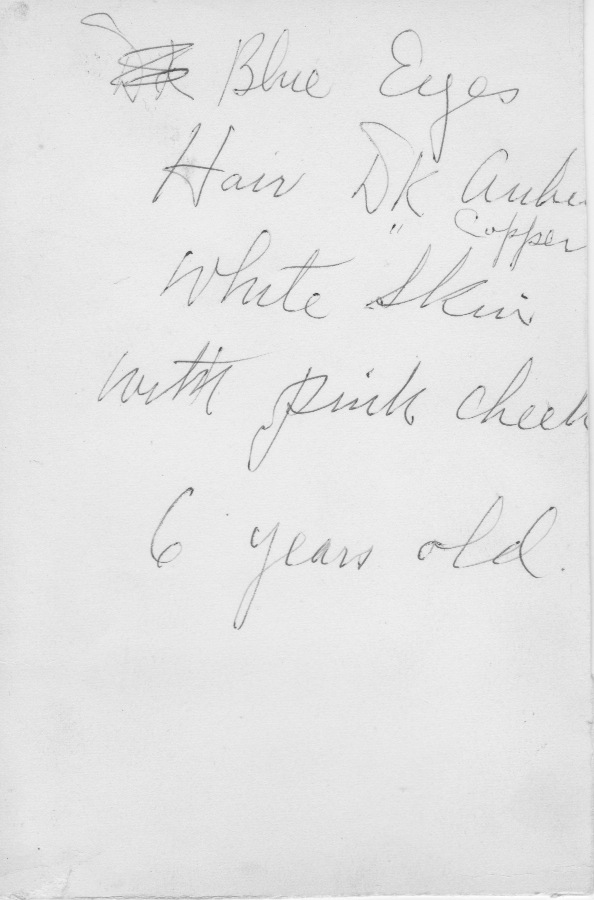 Blue Eyes
Hair DK Aube
" Copper
White Skin
with pink cheek
6 years old.